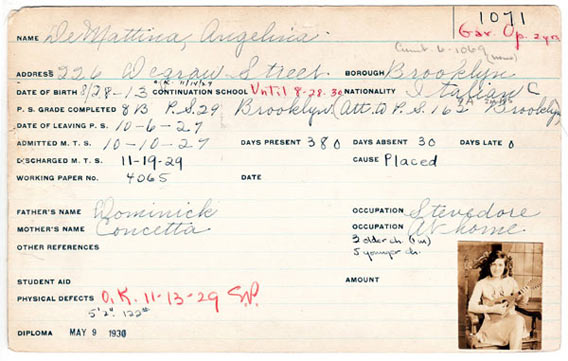 1071
Gar. Op. 2 yrs
NAME DeMattina, Angelina.
6-1069
ADDRESS 226 Degraw Street BOROUGH Brooklyn
DATE OF BIRTH 8/28-13 CONTINUATION SCHOOL Until 8-28-30 NATIONALITY Italian C
P. S. GRADE COMPLETED 8B P.S. 29 Brooklyn (Att. P.S. 162 Brooklyn)
DATE OF LEAVING P. S. 10-6-27
ADMITTED M. T. S. 10-10-27 DAYS PRESENT 380 DAYS ABSENT 30 DAYS LATE 0
DISCHARGED M. T. S. 11-19-29 CAUSE Placed
WORKING PAPER NO. 4065 DATE
FATHER'S NAME Dominick OCCUPATION Stevedore
MOTHER'S NAME Concetta OCCUPATION At home
OTHER REFERENCES 3 older ch.
5 younger ch.
STUDENT AID AMOUNT
PHYSICAL DEFECTS O.K. 11-13-29 S.P.
5'2" 122#
DIPLOMA MAY 9 1930